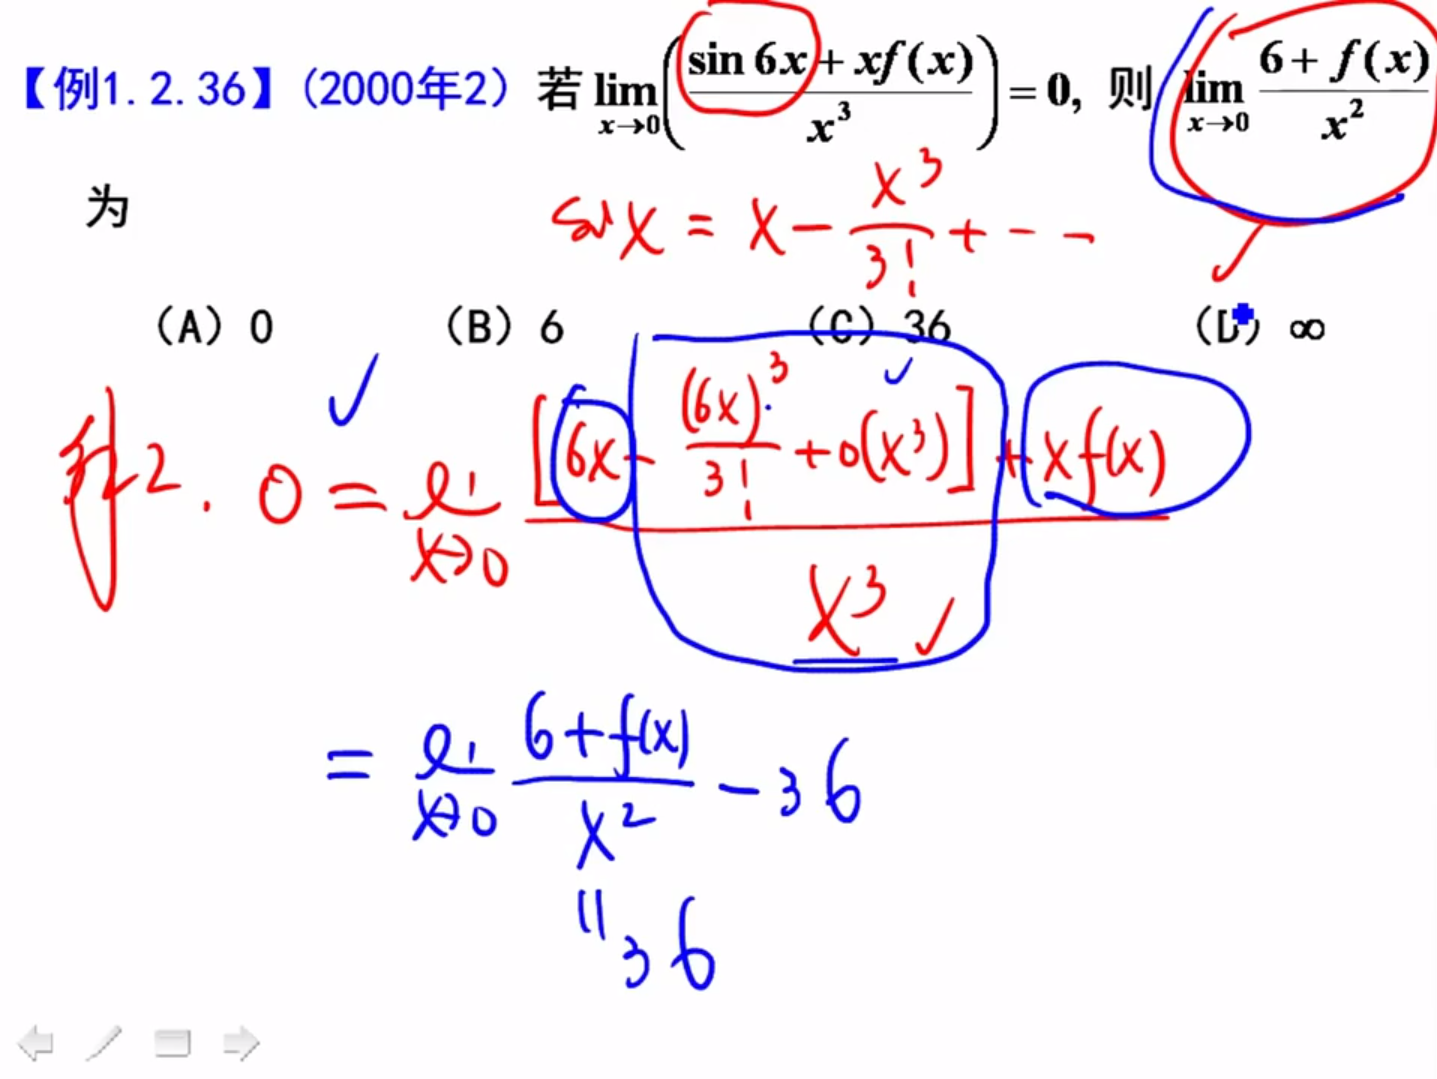 【例1.2.36】(2000年2) 若 lim x→0 ( (sin 6x + xf(x)) / x³ ) = 0, 则 lim x→0 (6 + f(x)) / x²
为
sin x = x - x³/3! + - -
(A) 0 (B) 6 (C) 36 (D) ∞
法2. 0 = lim x→0 ([6x - (6x)³/3! + o(x³)] + xf(x)) / x³
= lim x→0 (6+f(x)) / x² - 36
" 36